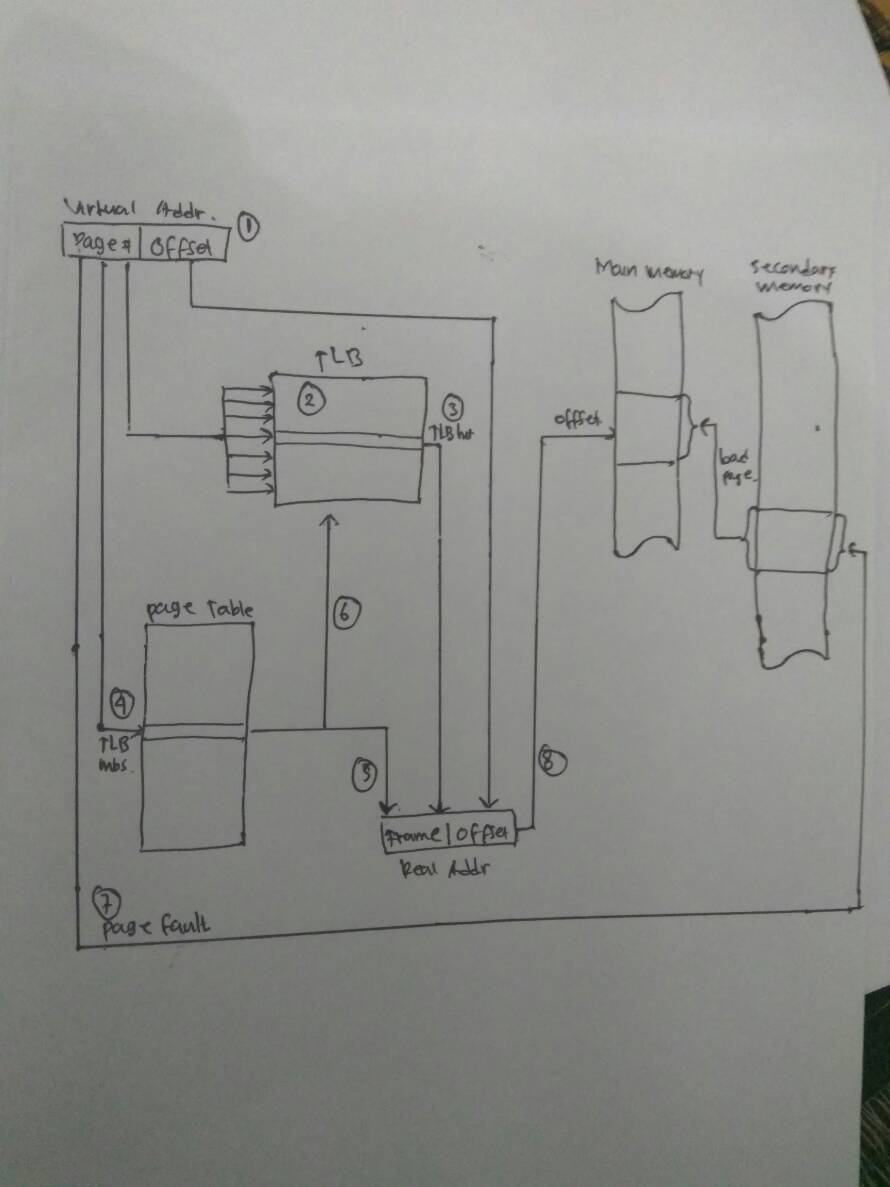 Virtual Addr.
①
Page# | Offset
Main memory
Secondary
memory
TLB
②
③
TLB hit
offset
load
page.
⑥
page Table
④
TLB
miss.
⑤
⑧
Frame | Offset
Real Addr
⑦
page fault